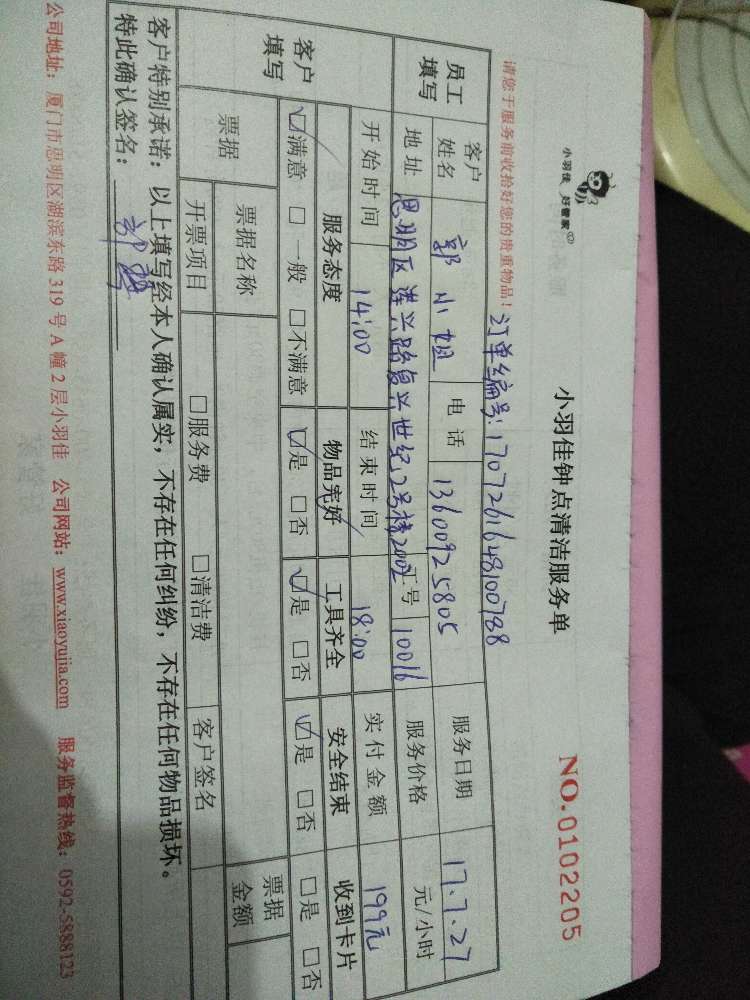 小羽佳 好管家
小羽佳钟点清洁服务单
NO.0102205
请您于服务前收拾好您的贵重物品!
订单编号:1707261648100788
员工填写
客户姓名 郭小姐 电话 13600925805 服务日期 17.7.27
地址 思明区莲兴路复兴世纪2号楼2002 工号 10016 服务价格 元/小时
客户填写
开始时间 14:00 结束时间 18:00 实付金额 199元
服务态度 物品完好 工具齐全 安全结束 收到卡片
☑满意 □一般 □不满意 ☑是 □否 ☑是 □否 ☑是 □否 □是 □否
票据 票据名称 票据金额
开票项目 □服务费 □清洁费 客户签名
客户特别承诺:以上填写经本人确认属实,不存在任何纠纷,不存在任何物品损坏。
特此确认签名:
公司地址:厦门市思明区湖滨东路 319 号 A 幢 2 层小羽佳 公司网站:www.xiaoyujia.com 服务监督热线:0592-5888123